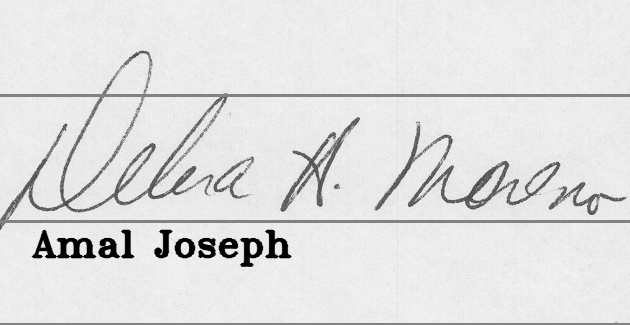 Debra H. Moreno
Amal Joseph